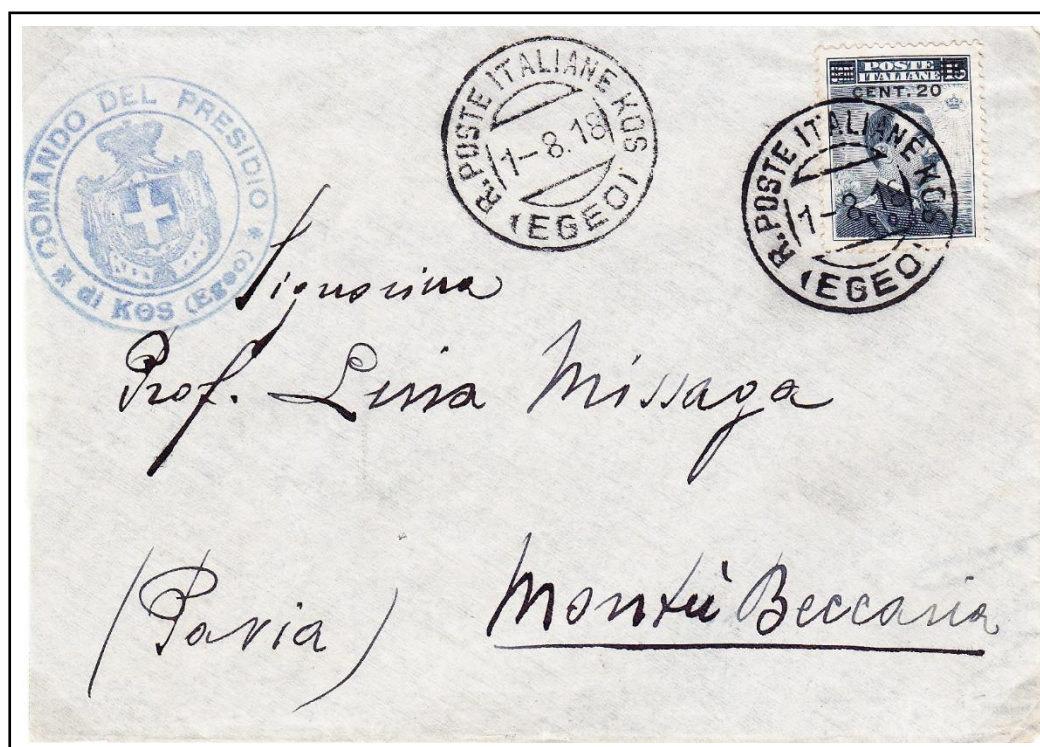 COMANDO DEL PRESIDIO
di KOS (Egeo)
R. POSTE ITALIANE KOS
1-8.18
(EGEO)
POSTE
ITALIANE
CENT. 20
R. POSTE ITALIANE KOS
1-8.18
(EGEO)
Signorina
Prof. Lina Missaga
(Pavia) Montù Beccaria